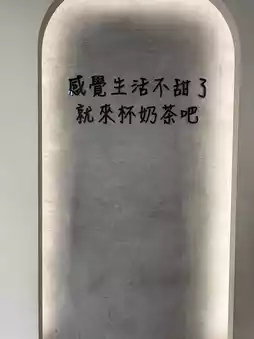 感覺生活不甜了
就來杯奶茶吧